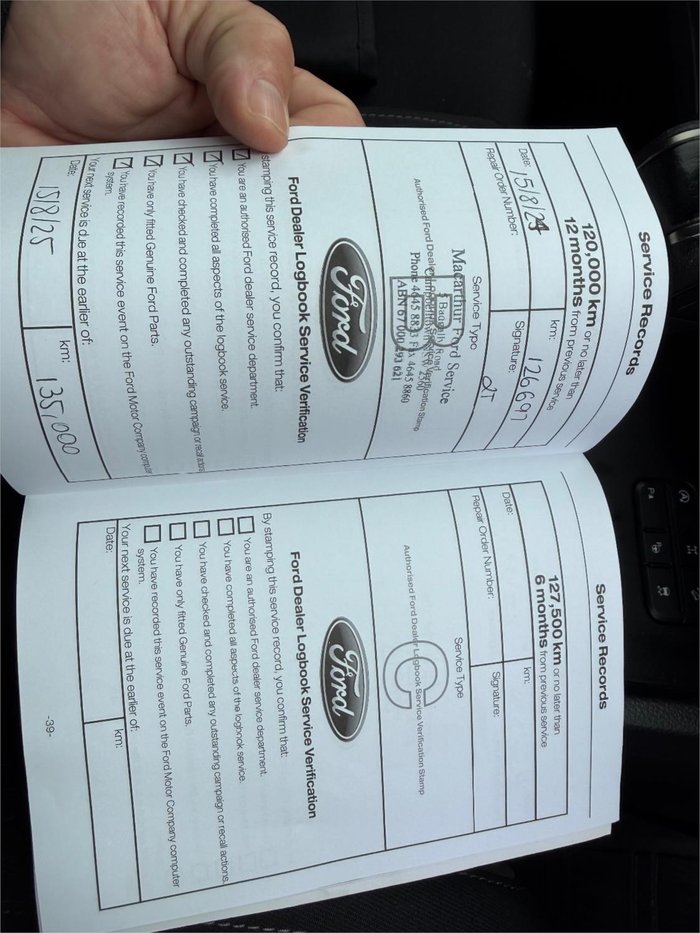 Service Records
120,000 km or no later than
12 months from previous service
Date: 15/8/24
km: 126697
Repair Order Number:
Signature:
Service Type
Macarthur Ford Service
Road
Phone 4645 8833 Fax 4645 8860
Authorised Ford Dealer Verification Stamp
Ford
Ford Dealer Logbook Service Verification
stamping this service record, you confirm that:
You are an authorised Ford dealer service department.
You have completed all aspects of the logbook service.
You have checked and completed any outstanding campaign or recall actions
You have only fitted Genuine Ford Parts.
You have recorded this service event on the Ford Motor Company
system.
Your next service is due at the earlier of:
Date: 15/8/25
km: 135,000
Service Records
127,500 km or no later than
6 months from previous service
Date:
km:
Repair Order Number:
Signature:
Service Type
C
Authorised Ford Dealer Logbook Service Verification Stamp
Ford
Ford Dealer Logbook Service Verification
By stamping this service record, you confirm that:
You are an authorised Ford dealer service department.
You have completed all aspects of the logbook service.
You have checked and completed any outstanding campaign or recall actions.
You have only fitted Genuine Ford Parts.
You have recorded this service event on the Ford Motor Company computer
system.
Your next service is due at the earlier of:
Date:
km:
-39-